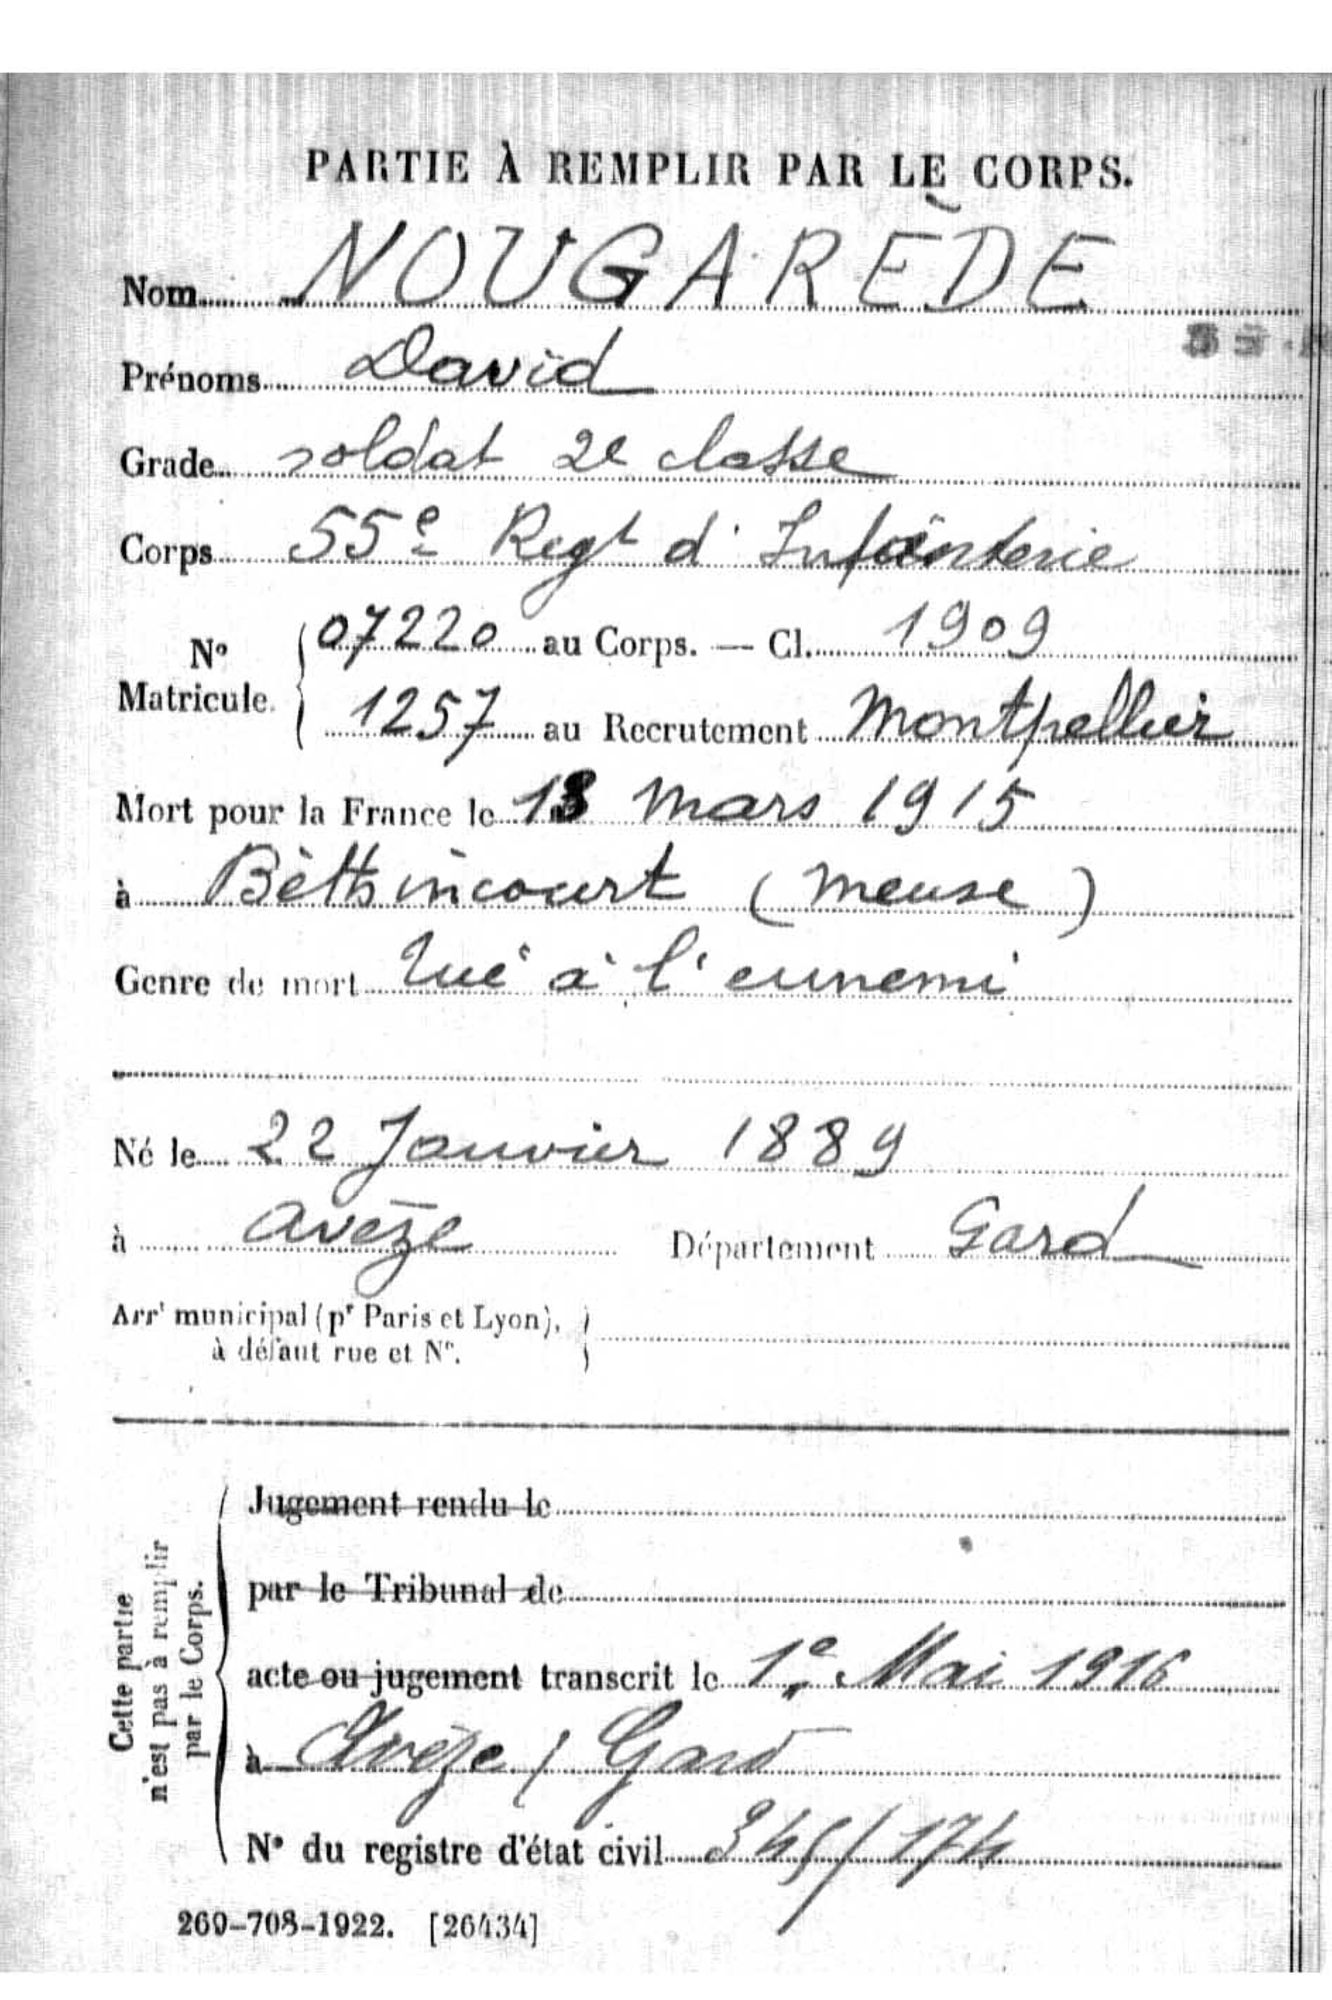 PARTIE À REMPLIR PAR LE CORPS.
Nom NOUGARÈDE
Prénoms David
Grade soldat 2e classe
Corps 55e Regt d'Infanterie
No Matricule. { 07220 au Corps. — Cl. 1909
1257 au Recrutement Montpellier
Mort pour la France le mars 1915
à Béthincourt (Meuse)
Genre de mort Tué à l'ennemi
Né le 22 Janvier 1889
à Avèze Département Gard
Arrt municipal (pr Paris et Lyon), à défaut rue et No. }
Cette partie n'est pas à remplir par le Corps.
Jugement rendu le
par le Tribunal de
acte ou jugement transcrit le 1e Mai 1916
à Avèze / Gard
No du registre d'état civil 345/174
260-708-1922. [26434]